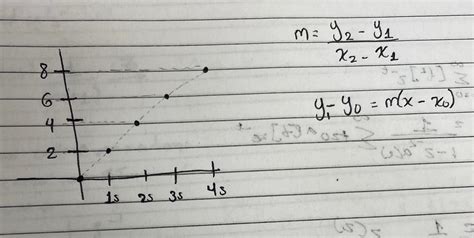 m = y2 - y1 / x2 - x1
8
6
y1 - y0 = m(x - x0)
4
2
1s 2s 3s 4s